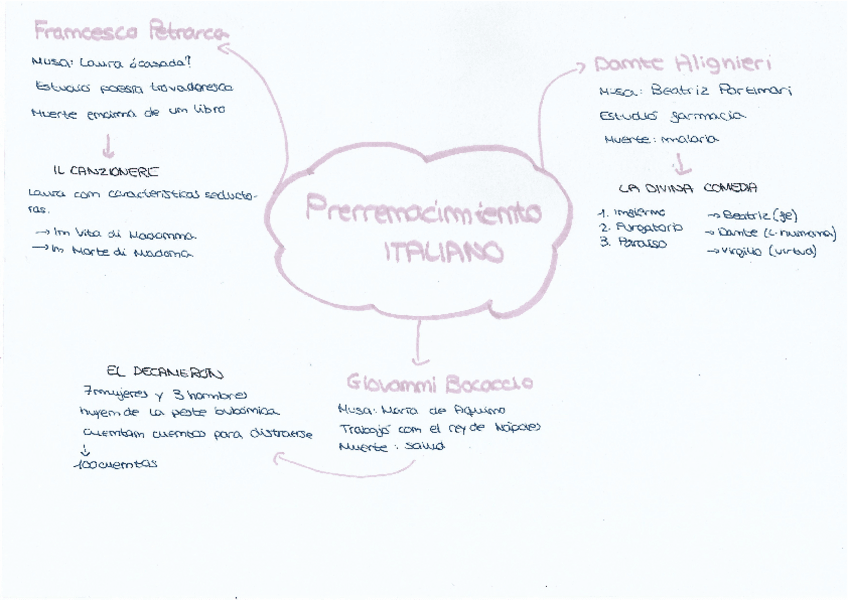 Francesco Petrarca
Musa: Laura ¿casada?
Estudió poesía trovadoresca
Muerte encima de un libro
IL CANZIONERE
Laura con características seducto-
ras.
→ In Vita di Madonna
→ In Morte di Madona
Prerrenacimiento
ITALIANO
Dante Alignieri
Musa: Beatriz Portinari
Estudió farmacia
Muerte: malaria
LA DIVINA COMEDIA
1. Infierno
2. Purgatorio
3. Paraíso
→ Beatriz (fe)
→ Dante (c. humana)
→ Virgilio (virtud)
EL DECAMERÓN
7 mujeres y 3 hombres
huyen de la peste bubónica
cuentan cuentos para distraerse
↓
100 cuentas
Giovanni Bocaccio
Musa: María de Aquino
Trabajó con el rey de Nápoles
Muerte: salud